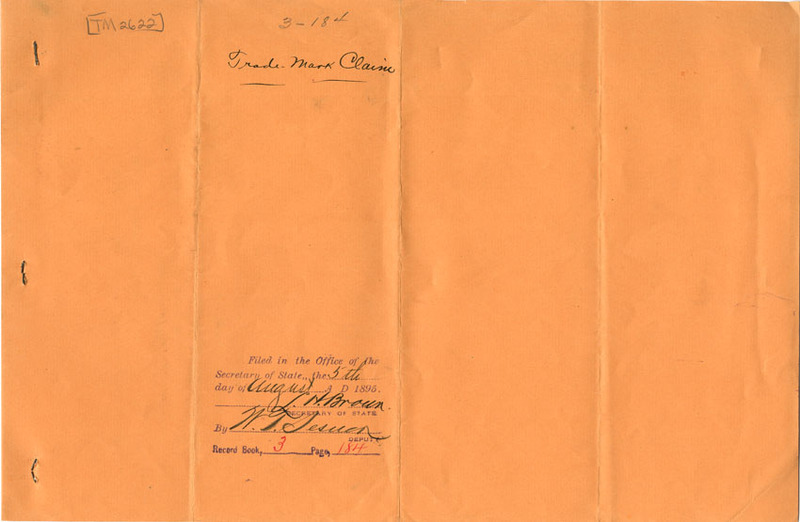 [TM2622]
3-184
Trade-Mark Claim
Filed in the Office of the
Secretary of State, the 5th
day of August A D 1895.
L. H. Brown
SECRETARY OF STATE.
By W. T.
DEPUTY.
Record Book, 3 Page, 184